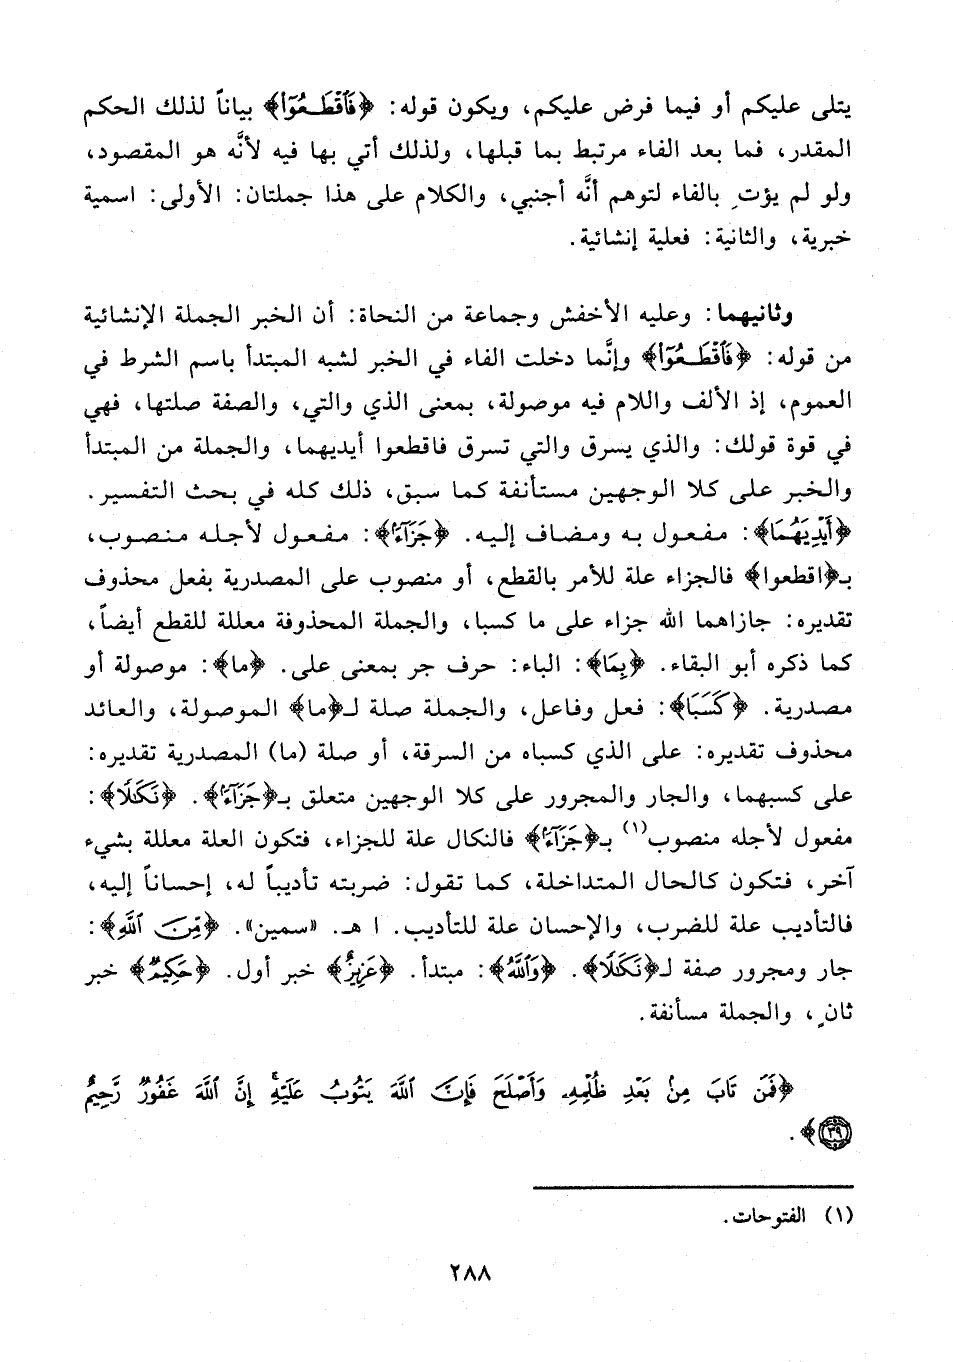 يتلى عليكم أو فيما فرض عليكم، ويكون قوله: ﴿فَاقْطَعُوٓا﴾ بياناً لذلك الحكم
المقدر، فما بعد الفاء مرتبط بما قبلها، ولذلك أتي بها فيه لأنَّه هو المقصود،
ولو لم يؤتِ بالفاء لتوهم أنَّه أجنبي، والكلام على هذا جملتان: الأولى: اسمية
خبرية، والثانية: فعلية إنشائية.
وثانيهما: وعليه الأخفش وجماعة من النحاة: أن الخبر الجملة الإنشائية
من قوله: ﴿فَاقْطَعُوٓا﴾ وإنَّما دخلت الفاء في الخبر لشبه المبتدأ باسم الشرط في
العموم، إذ الألف واللام فيه موصولة، بمعنى الذي والتي، والصفة صلتها، فهي
في قوة قولك: والذي يسرق والتي تسرق فاقطعوا أيديهما، والجملة من المبتدأ
والخبر على كلا الوجهين مستأنفة كما سبق، ذلك كله في بحث التفسير.
﴿أَيْدِيَهُمَا﴾: مفعول به ومضاف إليه. ﴿جَزَآءً﴾: مفعول لأجله منصوب،
بـ﴿اقطعوا﴾ فالجزاء علة للأمر بالقطع، أو منصوب على المصدرية بفعل محذوف
تقديره: جازاهما الله جزاء على ما كسبا، والجملة المحذوفة معللة للقطع أيضاً،
كما ذكره أبو البقاء. ﴿بِمَا﴾: الباء: حرف جر بمعنى على. ﴿ما﴾: موصولة أو
مصدرية. ﴿كَسَبَا﴾: فعل وفاعل، والجملة صلة لـ﴿ما﴾ الموصولة، والعائد
محذوف تقديره: على الذي كسباه من السرقة، أو صلة (ما) المصدرية تقديره:
على كسبهما، والجار والمجرور على كلا الوجهين متعلق بـ﴿جَزَآءً﴾. ﴿نَكَٰلًا﴾:
مفعول لأجله منصوب(١) بـ﴿جَزَآءً﴾ فالنكال علة للجزاء، فتكون العلة معللة بشيء
آخر، فتكون كالحال المتداخلة، كما تقول: ضربته تأديباً له، إحساناً إليه،
فالتأديب علة للضرب، والإحسان علة للتأديب. ا هـ. «سمين». ﴿مِّنَ ٱللَّهِ﴾:
جار ومجرور صفة لـ﴿نَكَٰلًا﴾. ﴿وَٱللَّهُ﴾: مبتدأ. ﴿عَزِيزٌ﴾ خبر أول. ﴿حَكِيمٌ﴾ خبر
ثانٍ، والجملة مسأنفة.
﴿فَمَن تَابَ مِنۢ بَعْدِ ظُلْمِهِۦ وَأَصْلَحَ فَإِنَّ ٱللَّهَ يَتُوبُ عَلَيْهِ ۚ إِنَّ ٱللَّهَ غَفُورٌ رَّحِيمٌ
٣٩﴾.
(١) الفتوحات.
٢٨٨